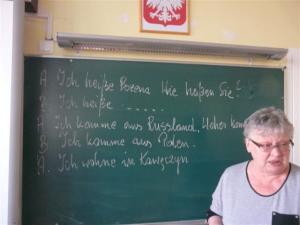 A. Ich heiße Bożena Wie heißen Sie?
B. Ich heiße ......
A. Ich komme aus Russland, Woher kom
B. Ich komme aus Polen.
A. Ich wohne in Kawęczyn